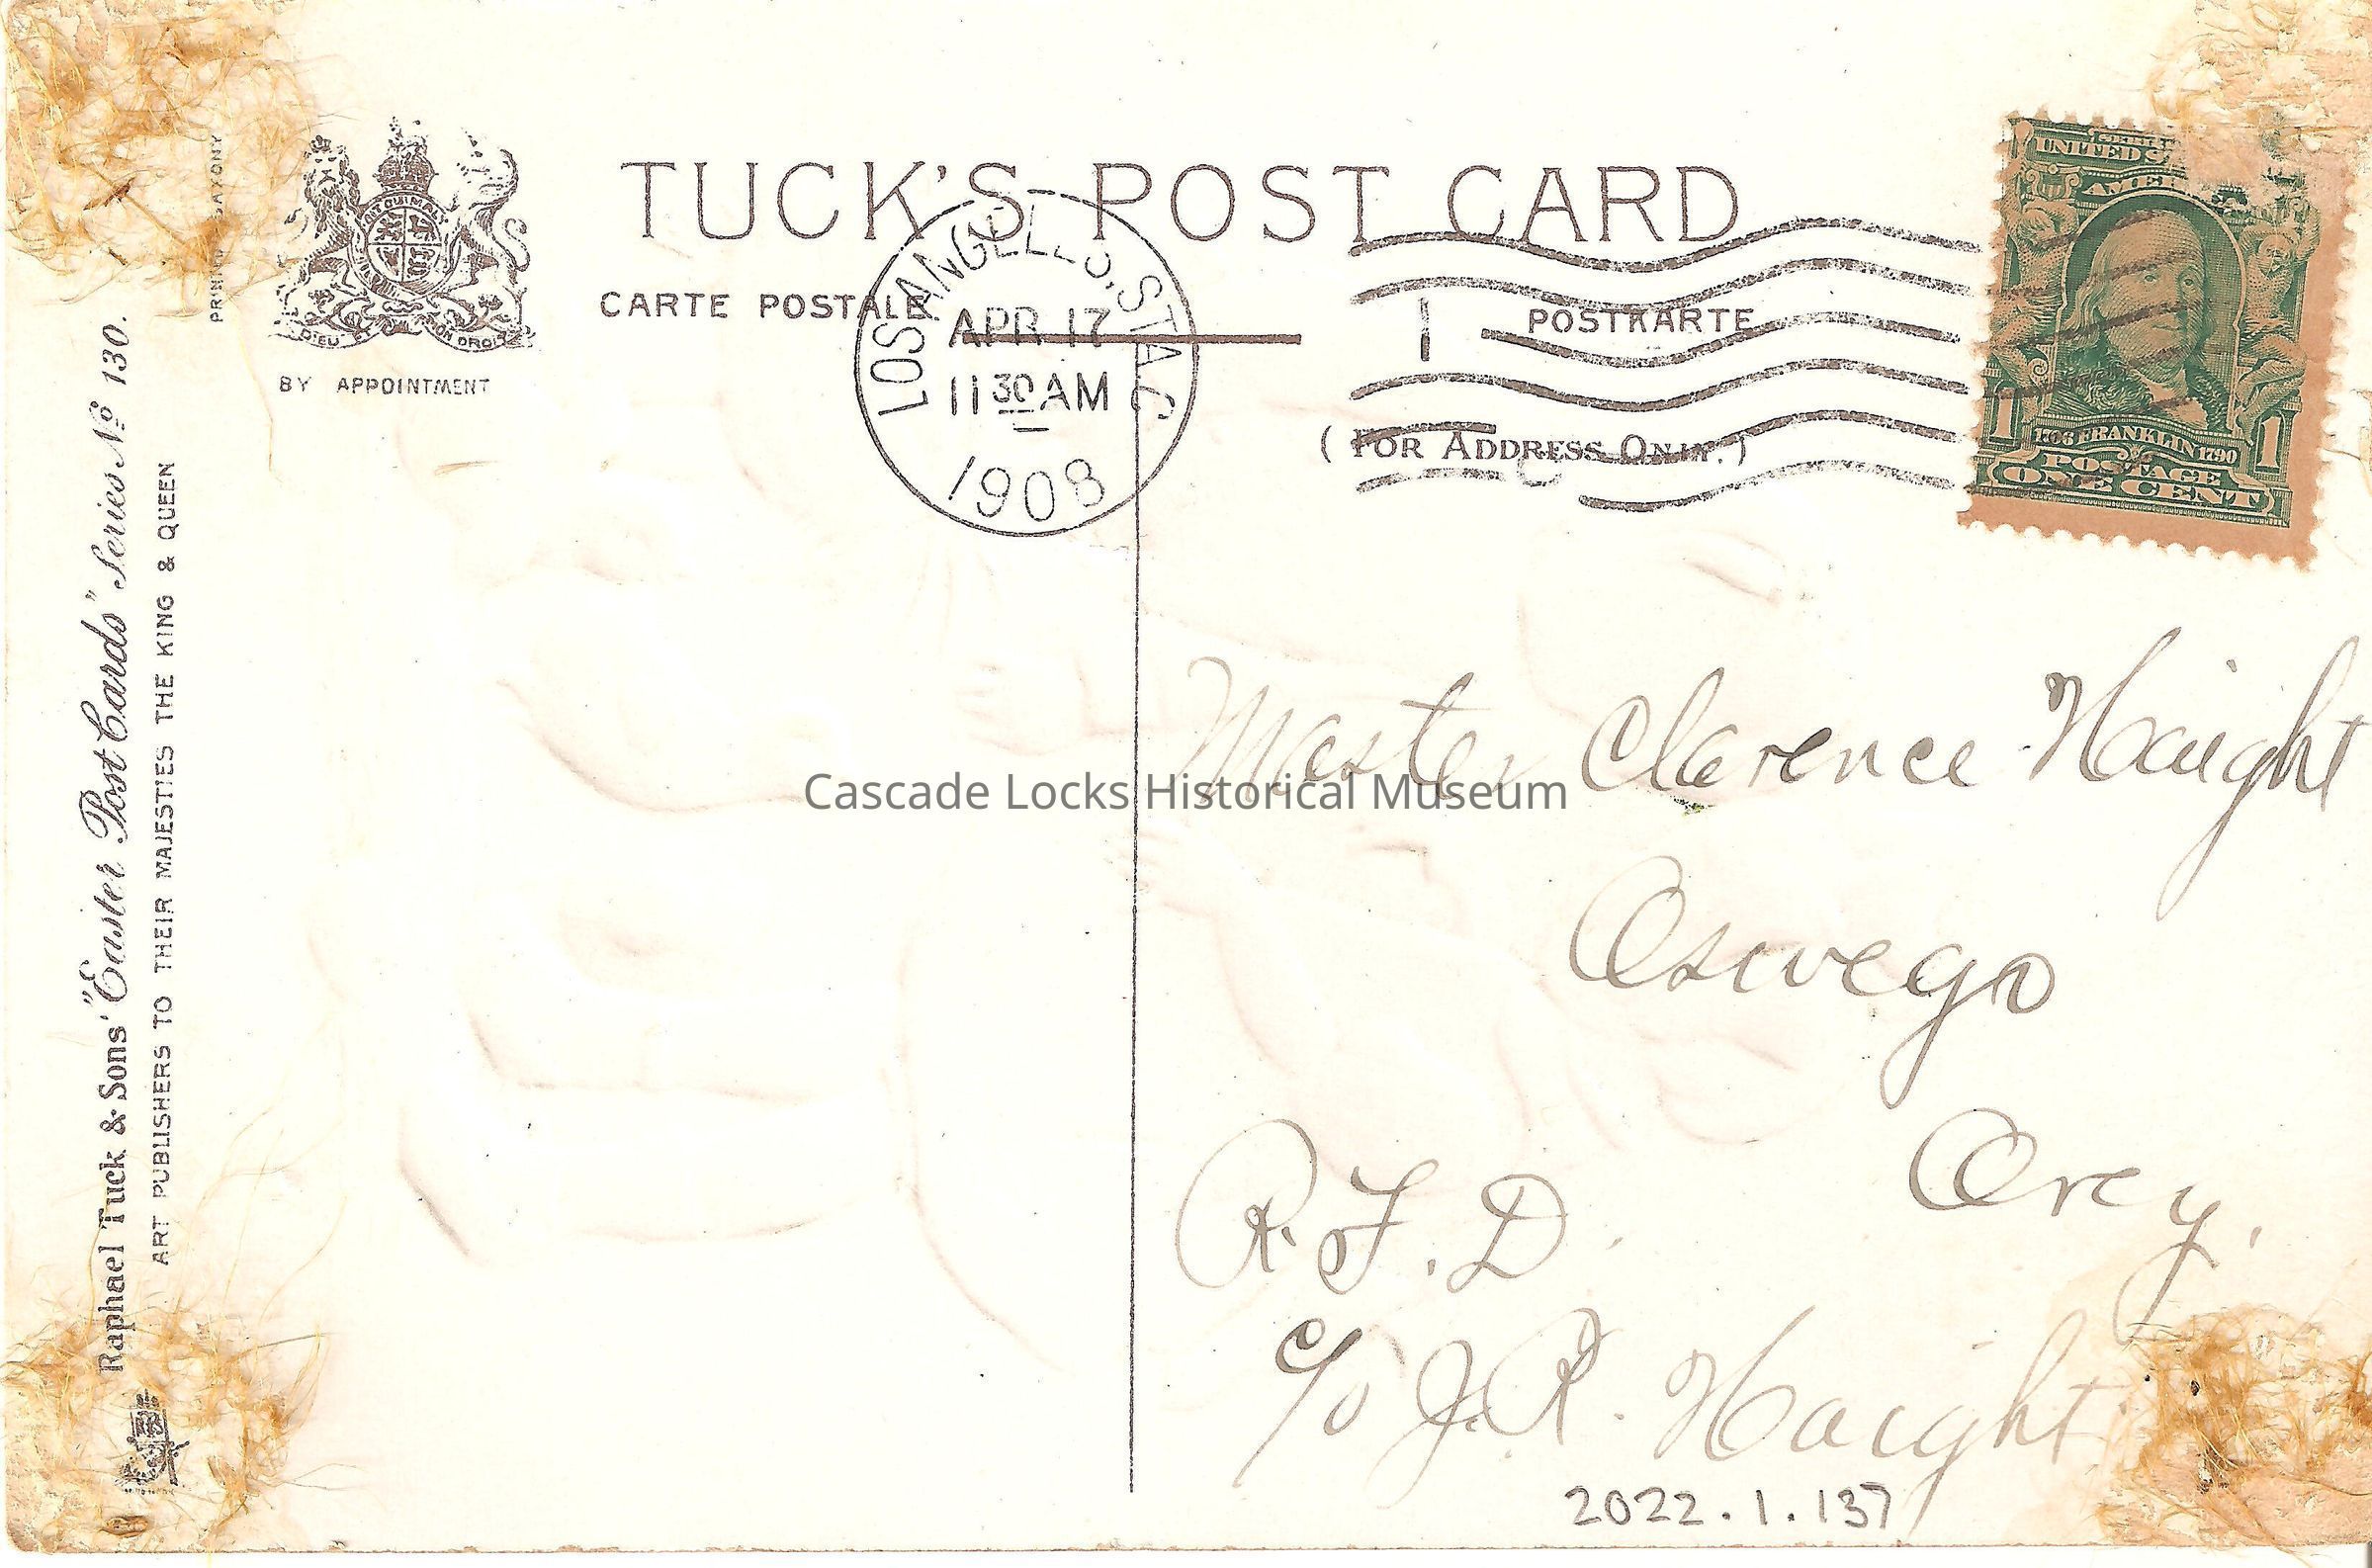 TUCK'S POST CARD
CARTE POSTALE
POSTKARTE
(FOR ADDRESS ONLY.)
BY APPOINTMENT
PRINTED SAXONY
Raphael Tuck & Sons' "Easter Post Cards" Series No 130.
ART PUBLISHERS TO THEIR MAJESTIES THE KING & QUEEN
LOS ANGELES, STA. C
APR 17
11 30 AM
1908
UNITED
AMER
1706 FRANKLIN 1790
POSTAGE
1 ONE CENT 1
Master Clarence Haight
Cascade Locks Historical Museum
Oswego
Orey.
R. F. D.
c/o J. R. Haight
2022.1.137